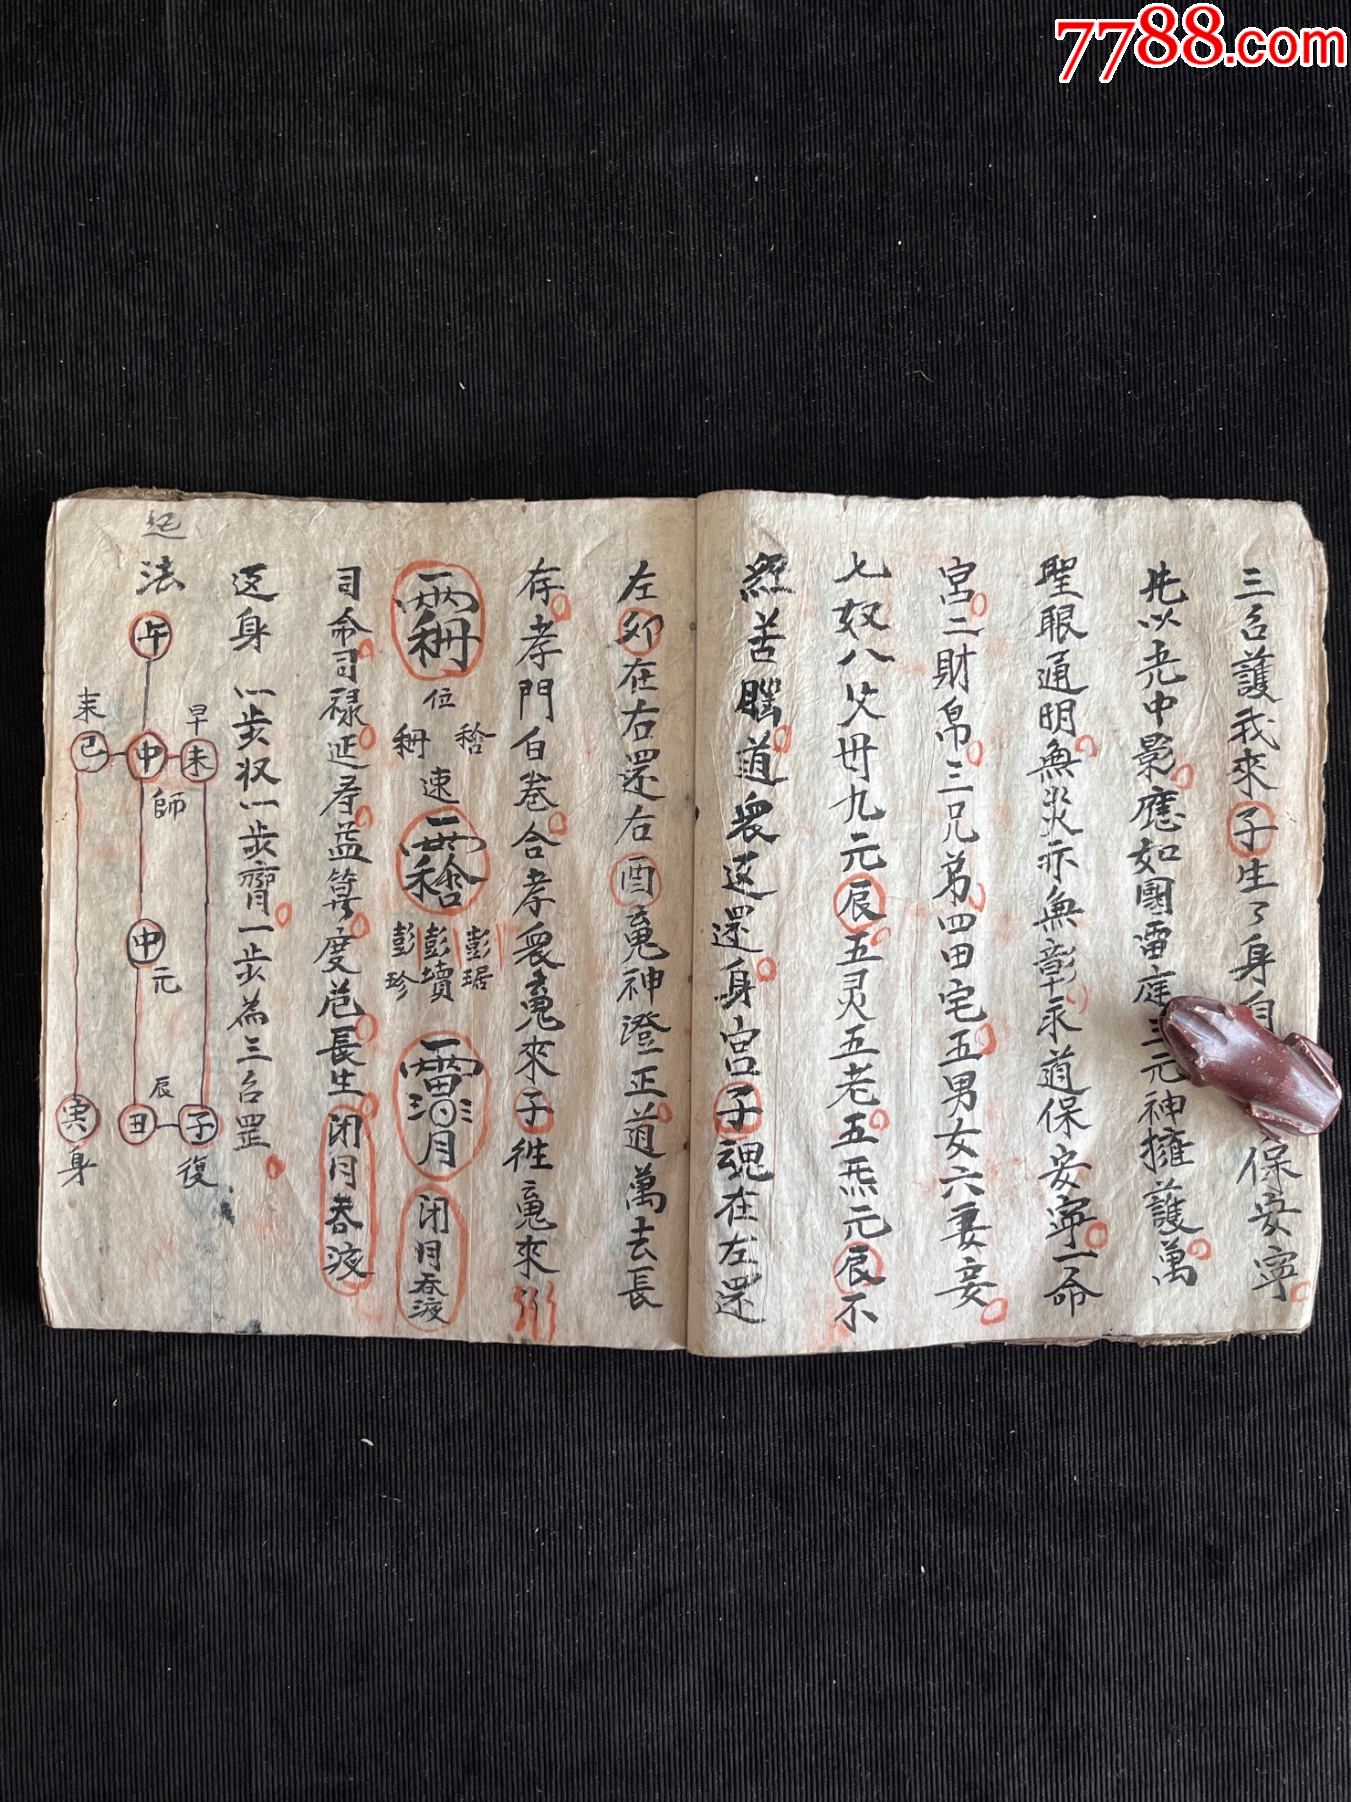 7788.com
三台護我來子生了身自保安寧
先以光中影應如 雷庭三元神擁護萬
聖眼通明無災亦無彰求道保安寧一命
宮二財帛三兄弟四田宅五男女六妻妾
七奴八父母九元辰五灵五老五炁元辰不
惹苦腦道衆返還身宮子魂在左還
左卯在右還右酉魂神澄正道萬去長
存孝門白卷合孝衆魂來子徃魂來
位
速
彭琚
彭瓆
彭珍
闭目吞液
司命司禄延寿益算度厄長生闭目吞液
返身一步収一步齊一步為三台罡
起
法
午
未
早
巳
中
未
師
中
元
辰
寅
丑
子
身
復